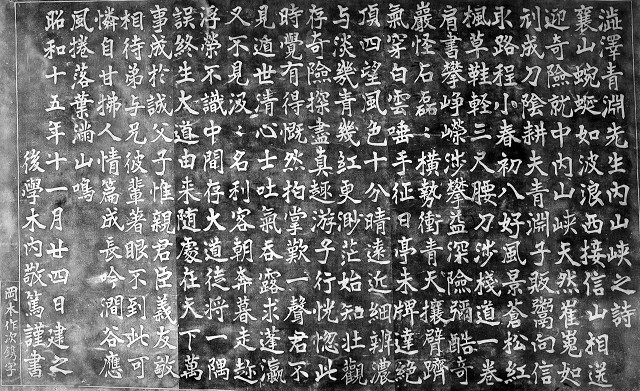 澁澤青淵先生内山峡之詩
襄山蜿蜒如波浪西接信山相送
迎奇險就中内山峡天然崔嵬如
刓成刀陰耕夫青淵子販鬻向信
取路程小春初八好風景蒼松紅
楓草鞋軽三尺腰刀渉棧道一巻
肩書攀崢嶸渉攀益深險彌酷奇
巖怪石磊〻横勢衝青天攘臂躋
氣穿白雲唾手征日亭未牌達絕
頂四望風色十分晴遠近細辨濃
与淡幾青幾紅更渺茫始知壮觀
存奇險探盡真趣游子行恍惚此
時覺有得慨然拘掌歎一聲君不
見遁世清心士吐氣呑露求蓬瀛
又不見汲〻名利客朝奔暮走趂
浮榮不識中間存大道徒將一隅
誤終生大道由来随處在天下萬
事成於誠父子惟親君臣義友敬
相待弟与兄彼輩著眼不到此可
憐自甘拂人情篇成長吟澗谷應
風捲落葉滿山鳴
昭和十五年十一月廿四日建之
後學木内敬篤謹書
岡本作次鐫字